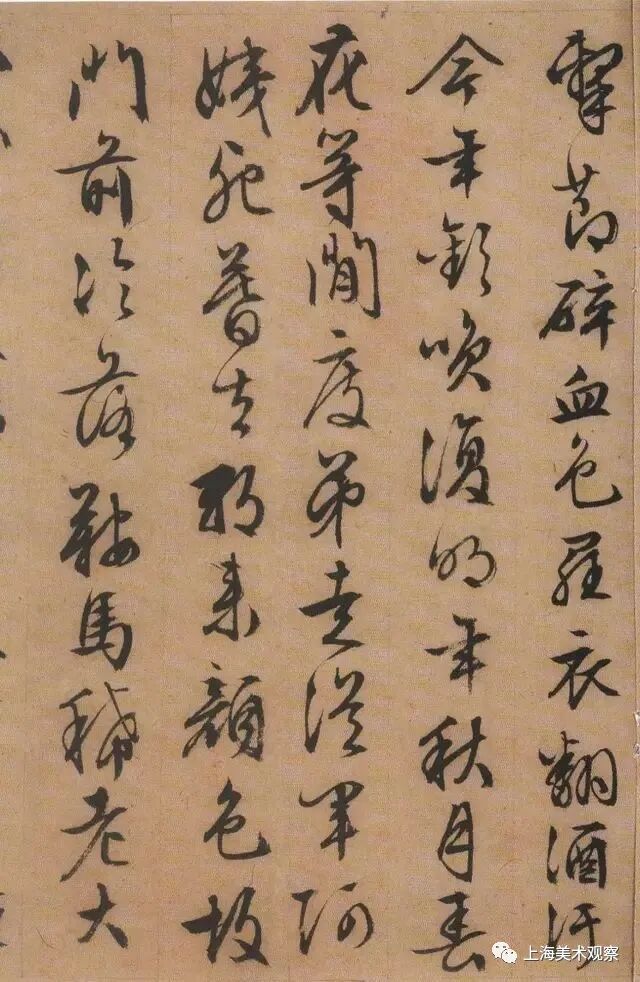 擊節碎血色羅衣翻酒汙
今年歡咲復明年秋月春
花等閒度弟走從軍阿
姨死暮去朝來顏色故
門前冷落鞍馬稀老大
上海美术观察